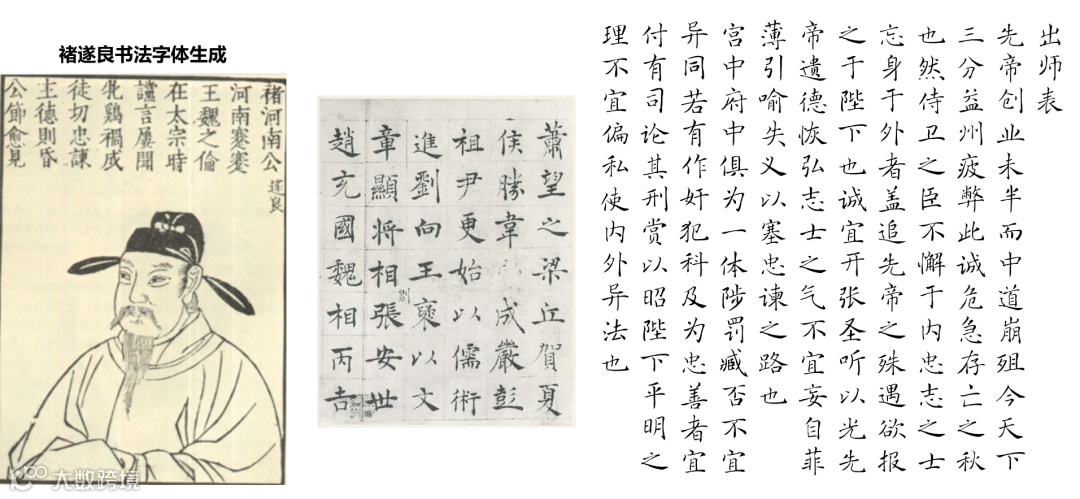 褚遂良书法字体生成
褚河南公
遂良
河南蹇蹇
王魏之倫
在太宗時
讜言屢聞
牝鷄禍成
徒切忠諫
主德則昏
公節愈見
蕭望之梁丘賀夏
侯勝韋成嚴彭
祖尹更始以儒術
進劉向王褒以文
章顯將相張安世
趙充國魏相丙吉
出师表
先帝创业未半而中道崩殂今天下
三分益州疲弊此诚危急存亡之秋
也然侍卫之臣不懈于内忠志之士
忘身于外者盖追先帝之殊遇欲报
之于陛下也诚宜开张圣听以光先
帝遗德恢弘志士之气不宜妄自菲
薄引喻失义以塞忠谏之路也
宫中府中俱为一体陟罚臧否不宜
异同若有作奸犯科及为忠善者宜
付有司论其刑赏以昭陛下平明之
理不宜偏私使内外异法也
大数跨境